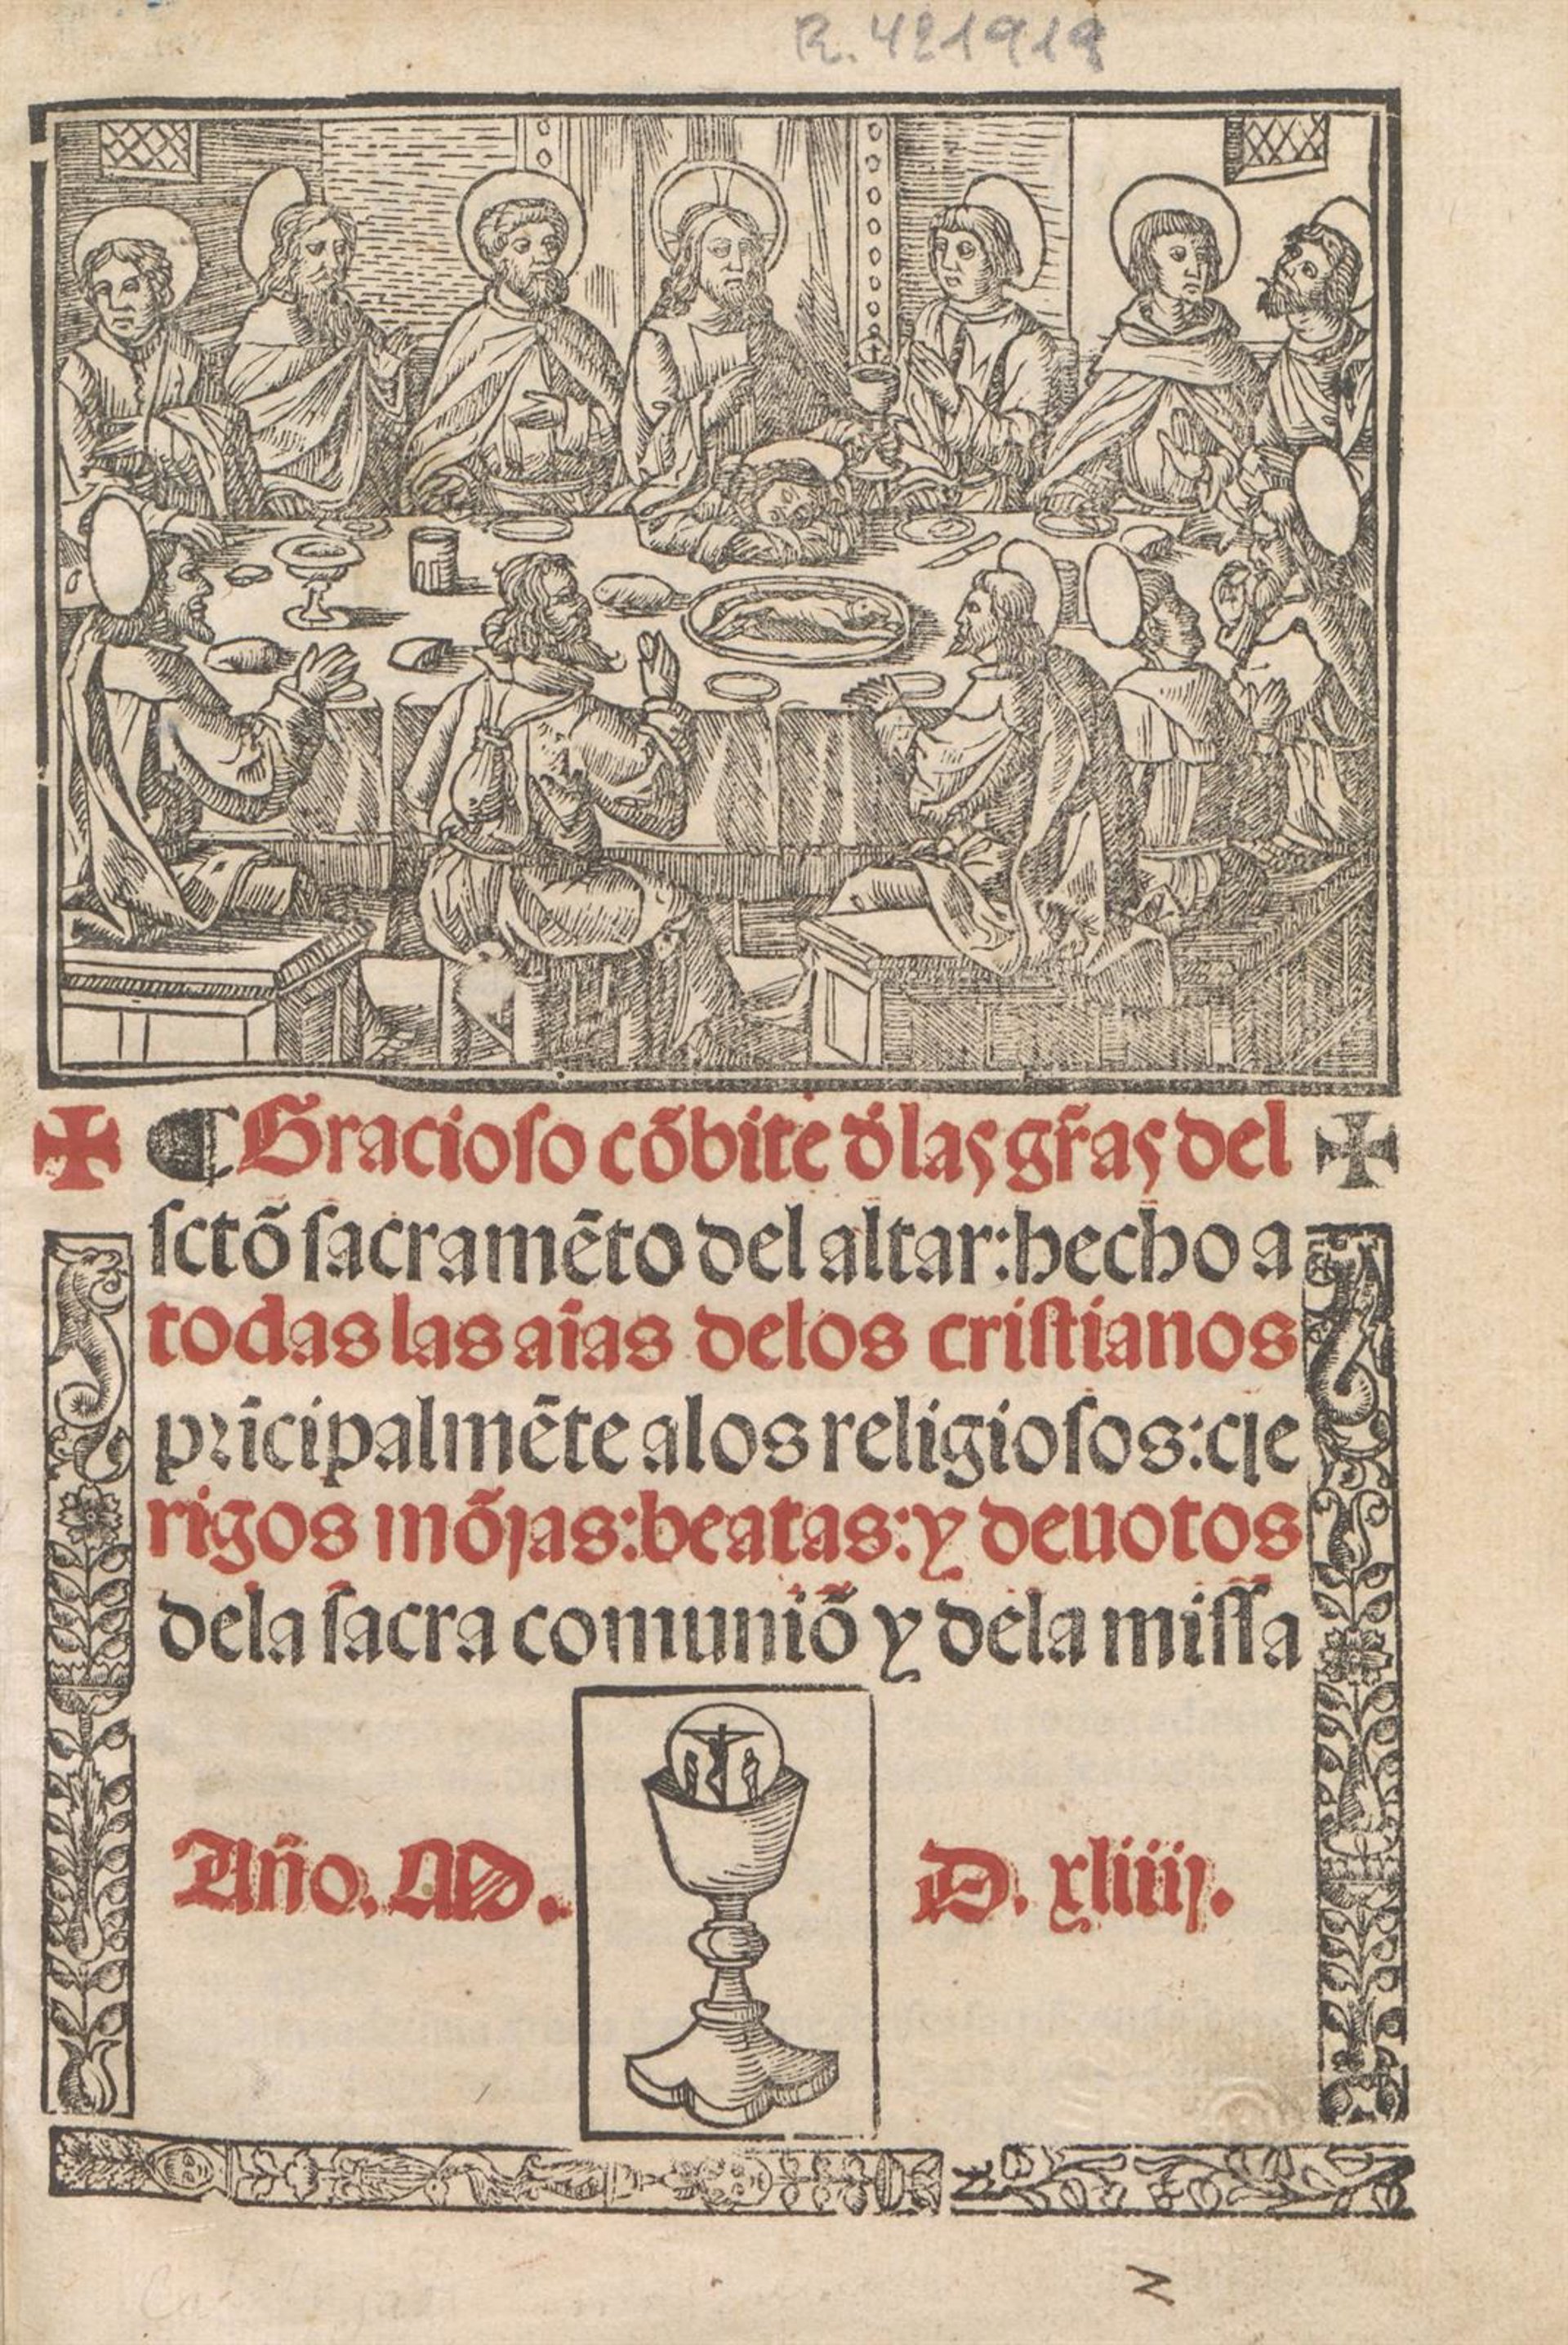 R. 421919
¶ Gracioso cõbite d̃ las gr̃as del
sctõ sacramẽto del altar: hecho a
todas las aĩas delos cristianos
prĩcipalmẽte alos religiosos: cle
rigos mõjas: beatas: y deuotos
dela sacra comuniõ y dela missa
Año. M. D. xliiij.